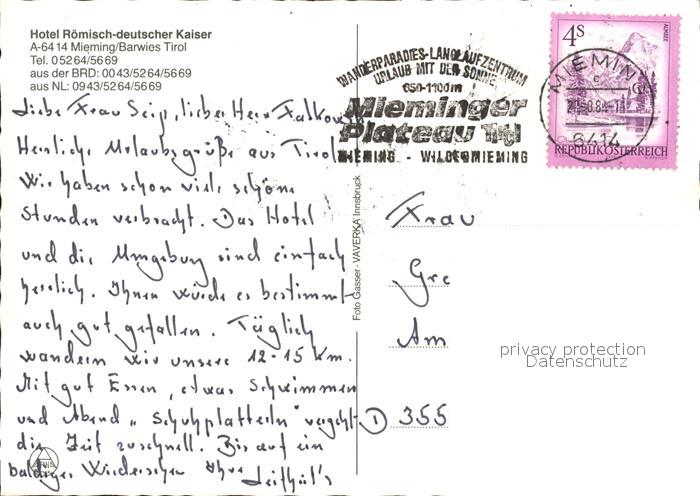 Hotel Römisch-deutscher Kaiser
A-6414 Mieming/Barwies Tirol
Tel. 05264/5669
aus der BRD: 0043/5264/5669
aus NL: 0943/5264/5669
Liebe Frau Seip, lieber Herr Falkow
Herzliche Urlaubsgrüße aus Tirol
Wir haben schon viele schöne
Stunden verbracht. Das Hotel
und die Umgebung sind einfach
herrlich. Ihnen würde es bestimmt
auch gut gefallen. Täglich
wandern wir unsere 12-15 km.
Mit gut Essen, etwas Schwimmen
und Abend „Schuhplatteln" vergeht
die Zeit zu schnell. Bis auf ein
baldiges Wiedersehen Ihre
WANDERPARADIES-LANGLAUFZENTRUM
URLAUB MIT DER SONNE
850-1100m
Mieminger
Plateau Tirol
MIEMING - WILDERMIEMING
4S
ALMSEE
REPUBLIK ÖSTERREICH
MIEMING
6414
Foto Gasser · VAVERKA Innsbruck
Frau
Gre
Am
D 355
privacy protection
Datenschutz